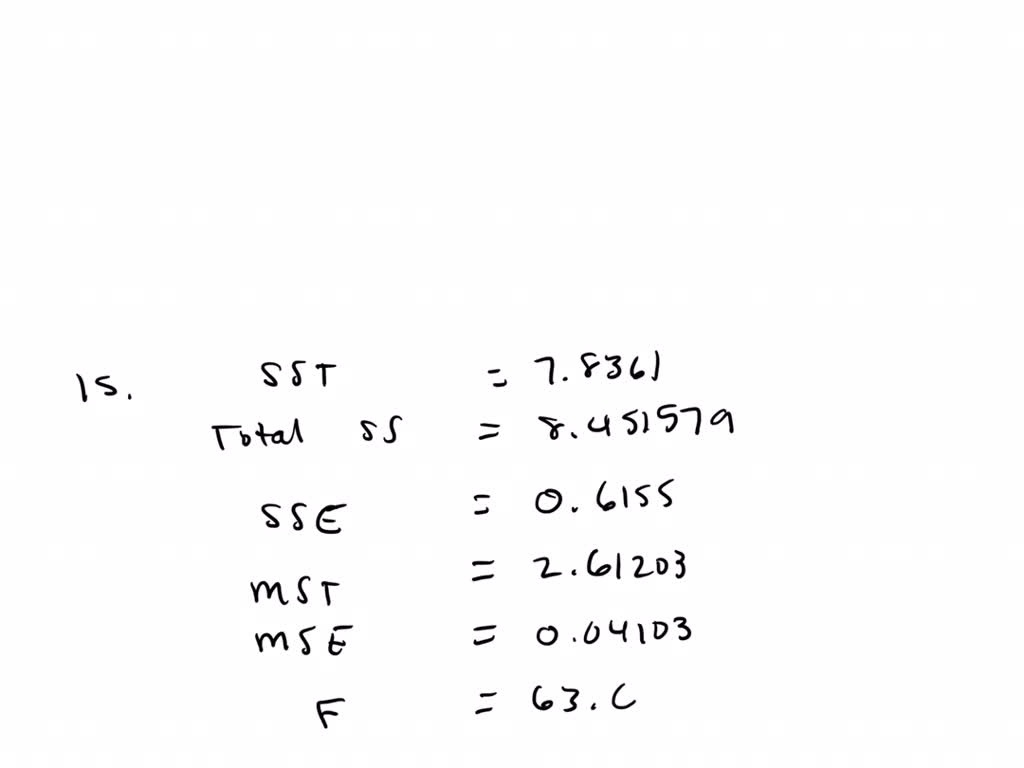 15. SST = 7.8361
Total SS = 8.451579
SSE = 0.6155
MST = 2.61203
MSE = 0.04103
F = 63.